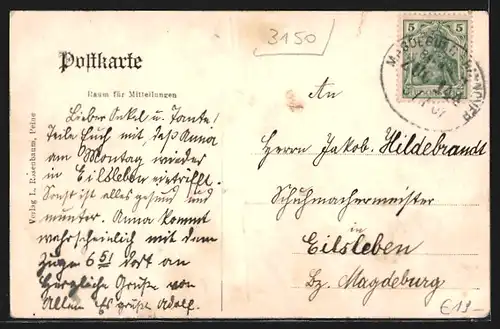 3150
5 5
MAGDEBURG HANNOVER
07
Postkarte
Raum für Mitteilungen
Verlag L. Rosenbaum, Peine
Lieber Onkel u. Tante!
Teile Euch mit, daß Anna
am Montag wieder
in Eilsleben eintrifft.
Sonst ist alles gesund und
munter. Anna kommt
wahrscheinlich mit dem
Zuge 6 51 dort an
Herzliche Grüße von
Allen Es grüßt Adolf.
An
Herrn Jakob Hildebrandt
Schuhmachermeister
in
Eilsleben
Bz. Magdeburg
€13-